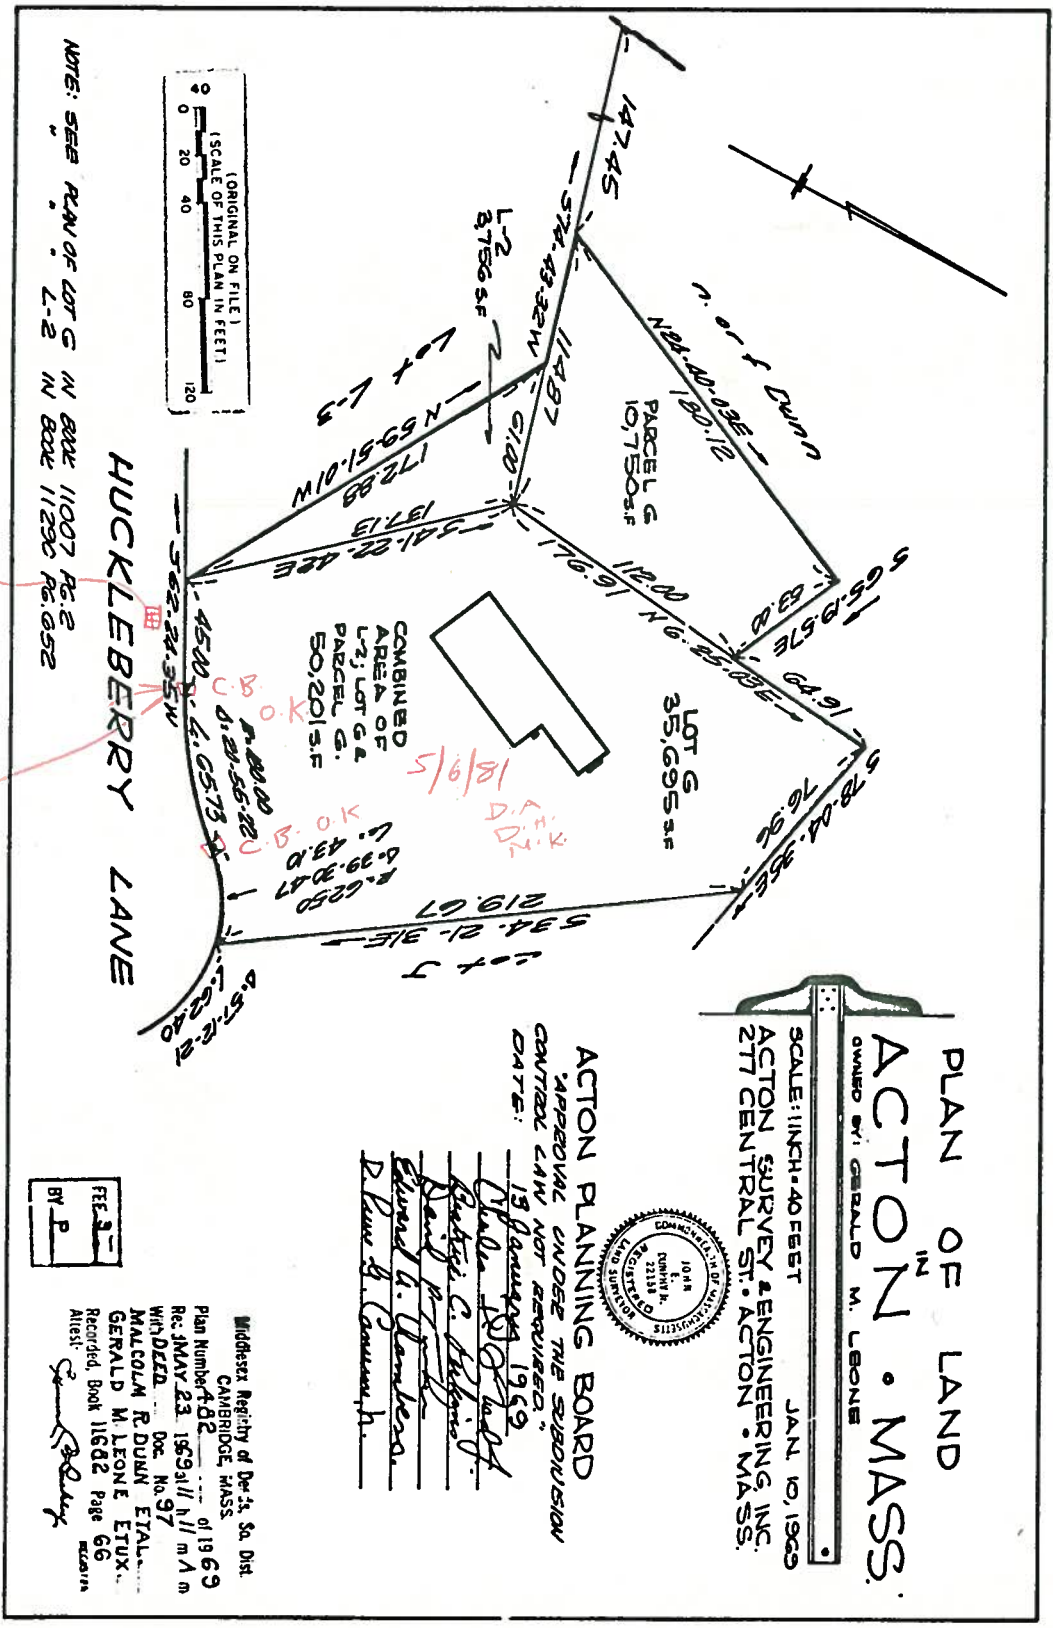 PLAN OF LAND
IN
ACTON • MASS.
OWNED BY: GERALD M. LEONE
SCALE: 1 INCH = 40 FEET JAN. 10, 1969
ACTON SURVEY & ENGINEERING, INC.
277 CENTRAL ST. • ACTON • MASS.
COMMONWEALTH OF MASSACHUSETTS
JOHN
E.
DUNPHY JR.
22158
REGISTERED
LAND SURVEYOR
ACTON PLANNING BOARD
"APPROVAL UNDER THE SUBDIVISION
CONTROL LAW NOT REQUIRED."
DATE: 13 January 1969
Edward A. Chambers
Middlesex Registry of Deeds, So. Dist.
CAMBRIDGE, MASS.
Plan Number 482 of 1969
Rec. MAY 23 1969 at 11 h 11 m A m
With DEED Doc. No. 97
MALCOLM R. DUNN ETAL
GERALD M. LEONE ETUX.
Recorded, Book 11682 Page 66
Attest:
FEE 3
BY P
147.45
S74-43-32W
114.87
61.00
n. or f. Dunn
N24-40-03E
180.12
PARCEL G
10,750 S.F
S 65-19-57E
63.00
121.00
176.91
N 9-25-03E
64.91
S 78-04-35E
76.96
LOT G
35,695 S.F
L-2
3,756 S.F
Lot L-3
N 59-51-01W
172.88
137.13
S41-22-42E
COMBINED
AREA OF
L-2; LOT G &
PARCEL G.
50,201 S.F
5/6/81
D.A.
D.H.
M.K.
S 34-21-31E
219.67
Lot J
S62-24-35W
45.00
C.B.
O.K.
R=180.00
Δ=20-55-22
L=65.73
C.B. O.K
R=62.50
Δ=39-30-47
L=43.10
Δ=57-12-21
L=62.40
HUCKLEBERRY LANE
(ORIGINAL ON FILE)
(SCALE OF THIS PLAN IN FEET)
40 0 20 40 80 120
NOTE: SEE PLAN OF LOT G IN BOOK 11007 PG.2
" " " L-2 IN BOOK 11290 PG.652